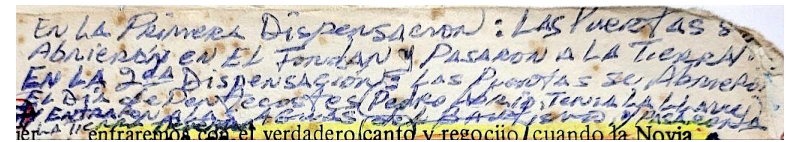 EN LA PRIMERA DISPENSACION: LAS PUERTAS S
ABRIERON EN EL JORDAN Y PASARON A LA TIERRA
EN LA 2da DISPENSACION: LAS PUERTAS SE ABRIERO
EL DIA de PENTECOSTES (PEDRO ABRIO, TENIA LA LLAVE)
Y ENTRARON A LAS AGUAS DEL BAUTISMO Y
LA TIERRA
entraremos con el verdadero canto y regocijo cuando la Novia